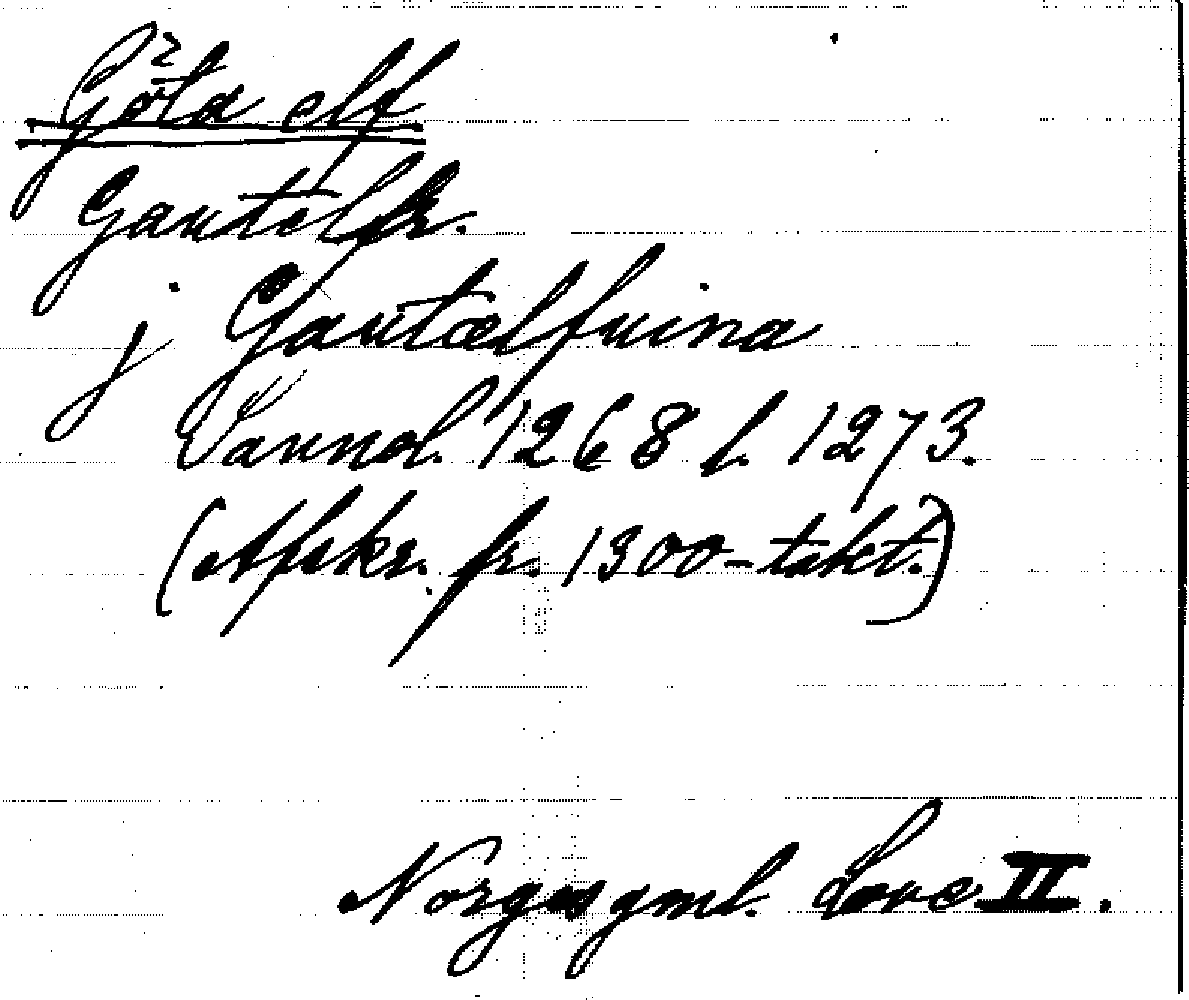 Göta elf
Gautelfr.
j Gautælfuina
Sannol. 1268 l. 1273.
(Afskr. fr. 1300-talet.)
Norges gml. Love II.